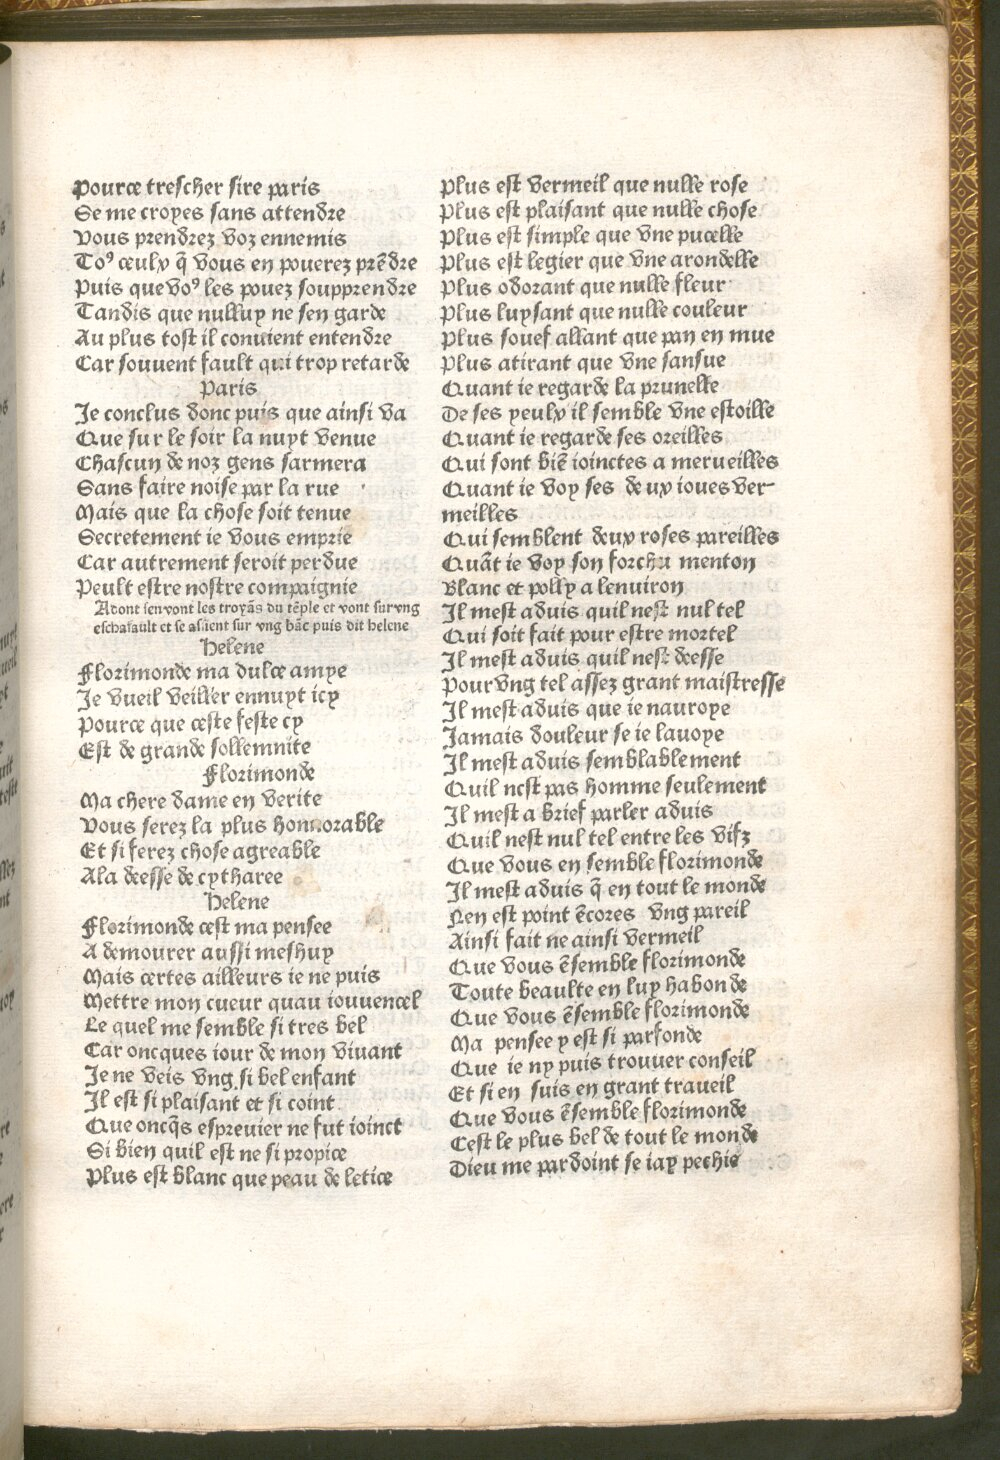 Pource trescher sire paris
Se me croyes sans attendre
Vous prendrez voz ennemis
Toꝰ ceulx q̃ vous en pouerez prẽdre
Puis que voꝰ les pouez soupprendre
Tandis que nulluy ne sen garde
Au plus tost il conuient entendre
Car souuent fault qui trop retarde
Paris
Je conclus donc puis que ainsi va
Que sur le soir la nuyt venue
Chascun de noz gens sarmera
Sans faire noise par la rue
Mais que la chose soit tenue
Secretement ie vous emprie
Car autrement seroit perdue
Peult estre nostre compaignie
Adont sen vont les troyãs du tẽple et vont sur vng
eschafault et se asaient sur vng bãc puis dit helene
Helene
Florimonde ma dulce amye
Je vueil veiller ennuyt icy
Pource que ceste feste cy
Est de grande sollemnite
Florimonde
Ma chere dame en verite
Vous serez la plus honnorable
Et si ferez chose agreable
Ala deesse de cytharee
Helene
Florimonde cest ma pensee
A demourer aussi meshuy
Mais certes ailleurs ie ne puis
Mettre mon cueur quau iouuencel
Le quel me semble si tres bel
Car oncques iour de mon viuant
Je ne veis vng si bel enfant
Il est si plaisant et si coint
Que oncq̃s espreuier ne fut ioinct
Si bien quil est ne si propice
Plus est blanc que peau de letice
Plus est vermeil que nulle rose
Plus est plaisant que nulle chose
Plus est simple que vne pucelle
Plus est legier que vne arondelle
Plus odorant que nulle fleur
Plus luysant que nulle couleur
Plus souef allant que pan en mue
Plus atirant que vne sansue
Quant ie regarde la prunelle
De ses yeulx il semble vne estoille
Quant ie regarde ses oreilles
Qui sont biẽ ioinctes a merueilles
Quant ie voy ses deux ioues ver-
meilles
Qui semblent deux roses pareilles
Quãt ie voy son forchu menton
Blanc et polly a lenuiron
Il mest aduis quil nest nul tel
Qui soit fait pour estre mortel
Il mest aduis quil nest deesse
Pour vng tel assez grant maistresse
Il mest aduis que ie nauroye
Jamais douleur se ie lauoye
Il mest aduis semblablement
Quil nest pas homme seulement
Il mest a brief parler aduis
Quil nest nul tel entre les vifz
Que vous en semble florimonde
Il mest aduis q̃ en tout le monde
Nen est point ẽcores vng pareil
Ainsi fait ne ainsi vermeil
Que vous ẽsemble florimonde
Toute beaulte en luy habonde
Que vous ẽsemble florimonde
Ma pensee y est si parfonde
Que ie ny puis trouuer conseil
Et si en suis en grant traueil
Que vous ẽsemble florimonde
Cest le plus bel de tout le monde
Dieu me pardoint se iay pechie